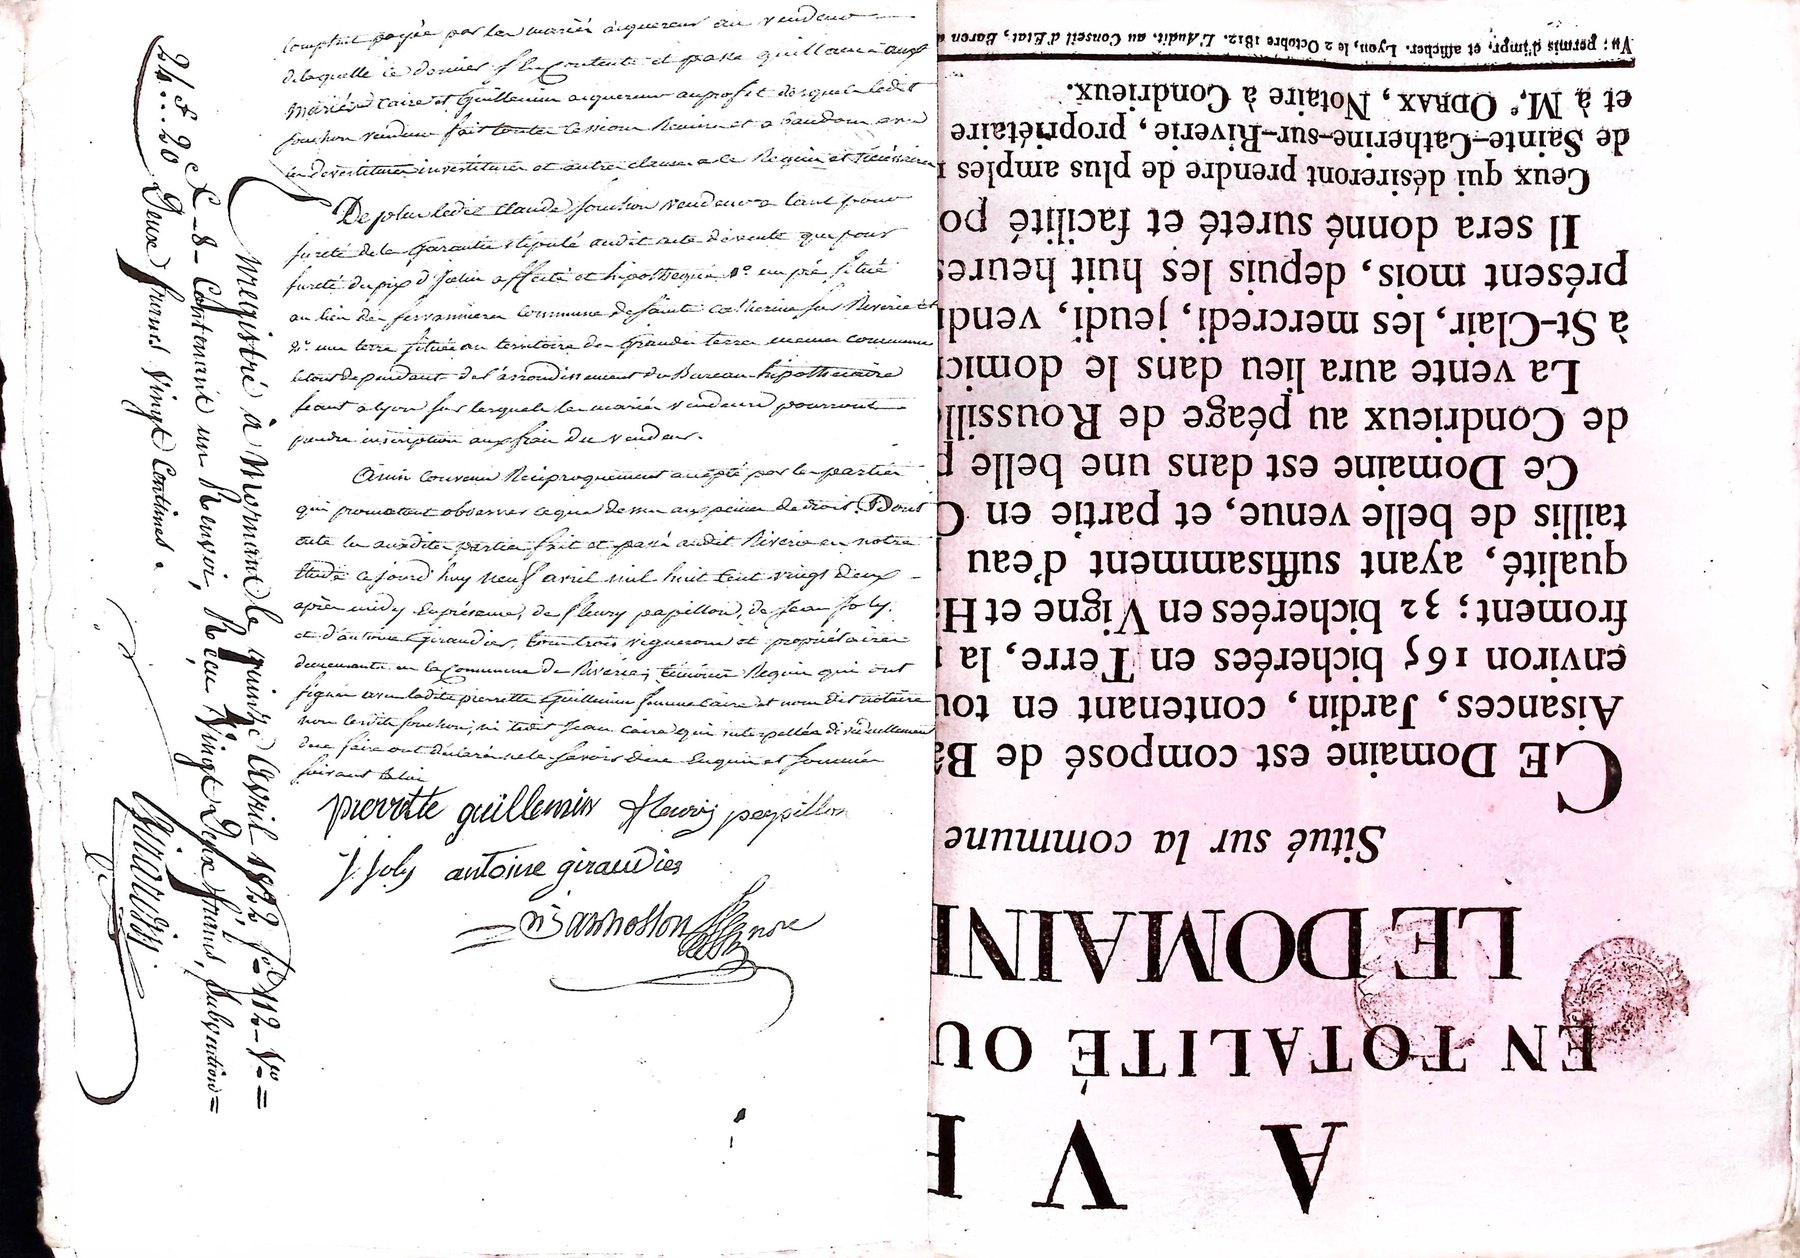 comptant payée par les mariés aquereurs au vendeur
de laquelle ce dernier s'en contente et passe quittance aux
mariés Caire et Guillemin aquereurs au profit desquels ledit
souchon vendeur fait toutes cessions Remises et abandons avec
les devestitures investitures et autres clauses a ce Requises et nécéssaires
De plus ledit Claude souchon vendeur a tant pour
sureté de la garantie stipulé audit acte de vente que pour
sureté du prix d'jcelui affecté et hipothequé 1º. un pré situé
au lieu de ferrannieres commune de sainte catherine sur Riverie et
2º. une terre située au territoire des Grandes terres meme commune
le tout dependant de l'arrondissement du Bureau hipothécaire
séant a lyon sur lesquels les mariés vendeurs pourront
prendre inscription aux frais du vendeur.
Ainsi convenu Réciproquement accepté par les parties
qui promettent observer ce que dessus aux peines de droit. Dont
acte les susdites parties fait et passé audit Riverie en notre
Etude ce jourd'huy neuf avril mil huit cent vingt deux
après midy En présence, de fleury papillon, de Jean Joly,
et d'antoine Giraudier, tous trois vignerons et propriétaires
demeurants en la Commune de Riverie, témoins Requis qui ont
signés avec ladite pierrette Guillemin femme Caire et nous dit notaire
non ledit souchon, ni ledit Jean Caire qui interpellés
de le faire ont déclaré ne le savoir de ce Enquis et sommés
suivant la loi
pierrette guillemin fleury papillon
J. Joly antoine giraudier
Enregistré à Mornant le quinze Avril 1822 fº 112 Vº
C. 8 Contenant un Renvoi, Reçu Vingt Deux francs, subvention
Deux francs Vingt Centimes.
24f 20c
A VE
EN TOTALITÉ OU
LE DOMAINE
Situé sur la commune
CE Domaine est composé de Bâ
Aisances, Jardin, contenant en tou
environ 165 bicherées en Terre, la
froment; 32 bicherées en Vigne et H
qualité, ayant suffisamment d'eau
taillis de belle venue, et partie en C
Ce Domaine est dans une belle p
de Condrieux au péage de Roussill
La vente aura lieu dans le domici
à St-Clair, les mercredi, jeudi, vendr
présent mois, depuis les huit heures
Il sera donné sureté et facilité po
Ceux qui désireront prendre de plus amples
de Sainte-Catherine-sur-Riverie, propriétaire
et à M.e ODRAX, Notaire à Condrieux.
Vu; permis d'impr. et afficher. Lyon, le 2 Octobre 1812. L'Audit. au Conseil d'État, Baron